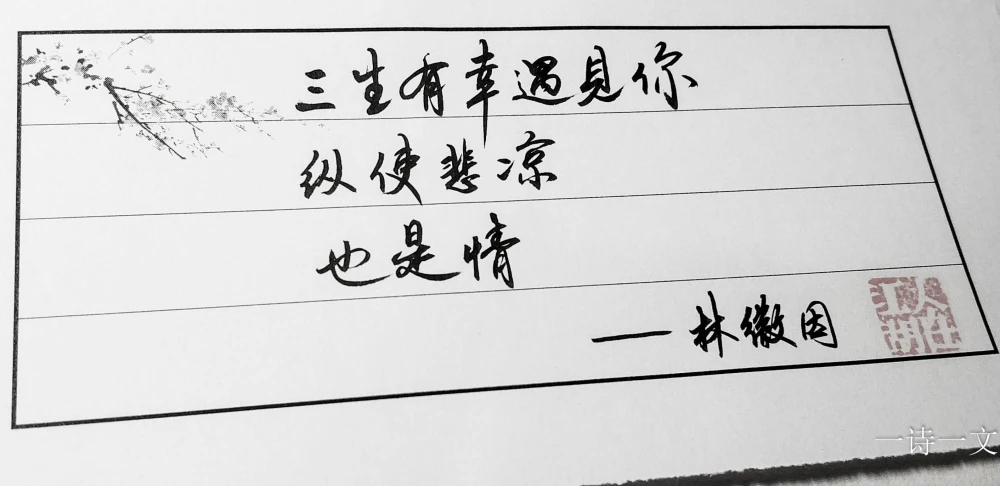 三生有幸遇见你
纵使悲凉
也是情
——林徽因
一诗一文